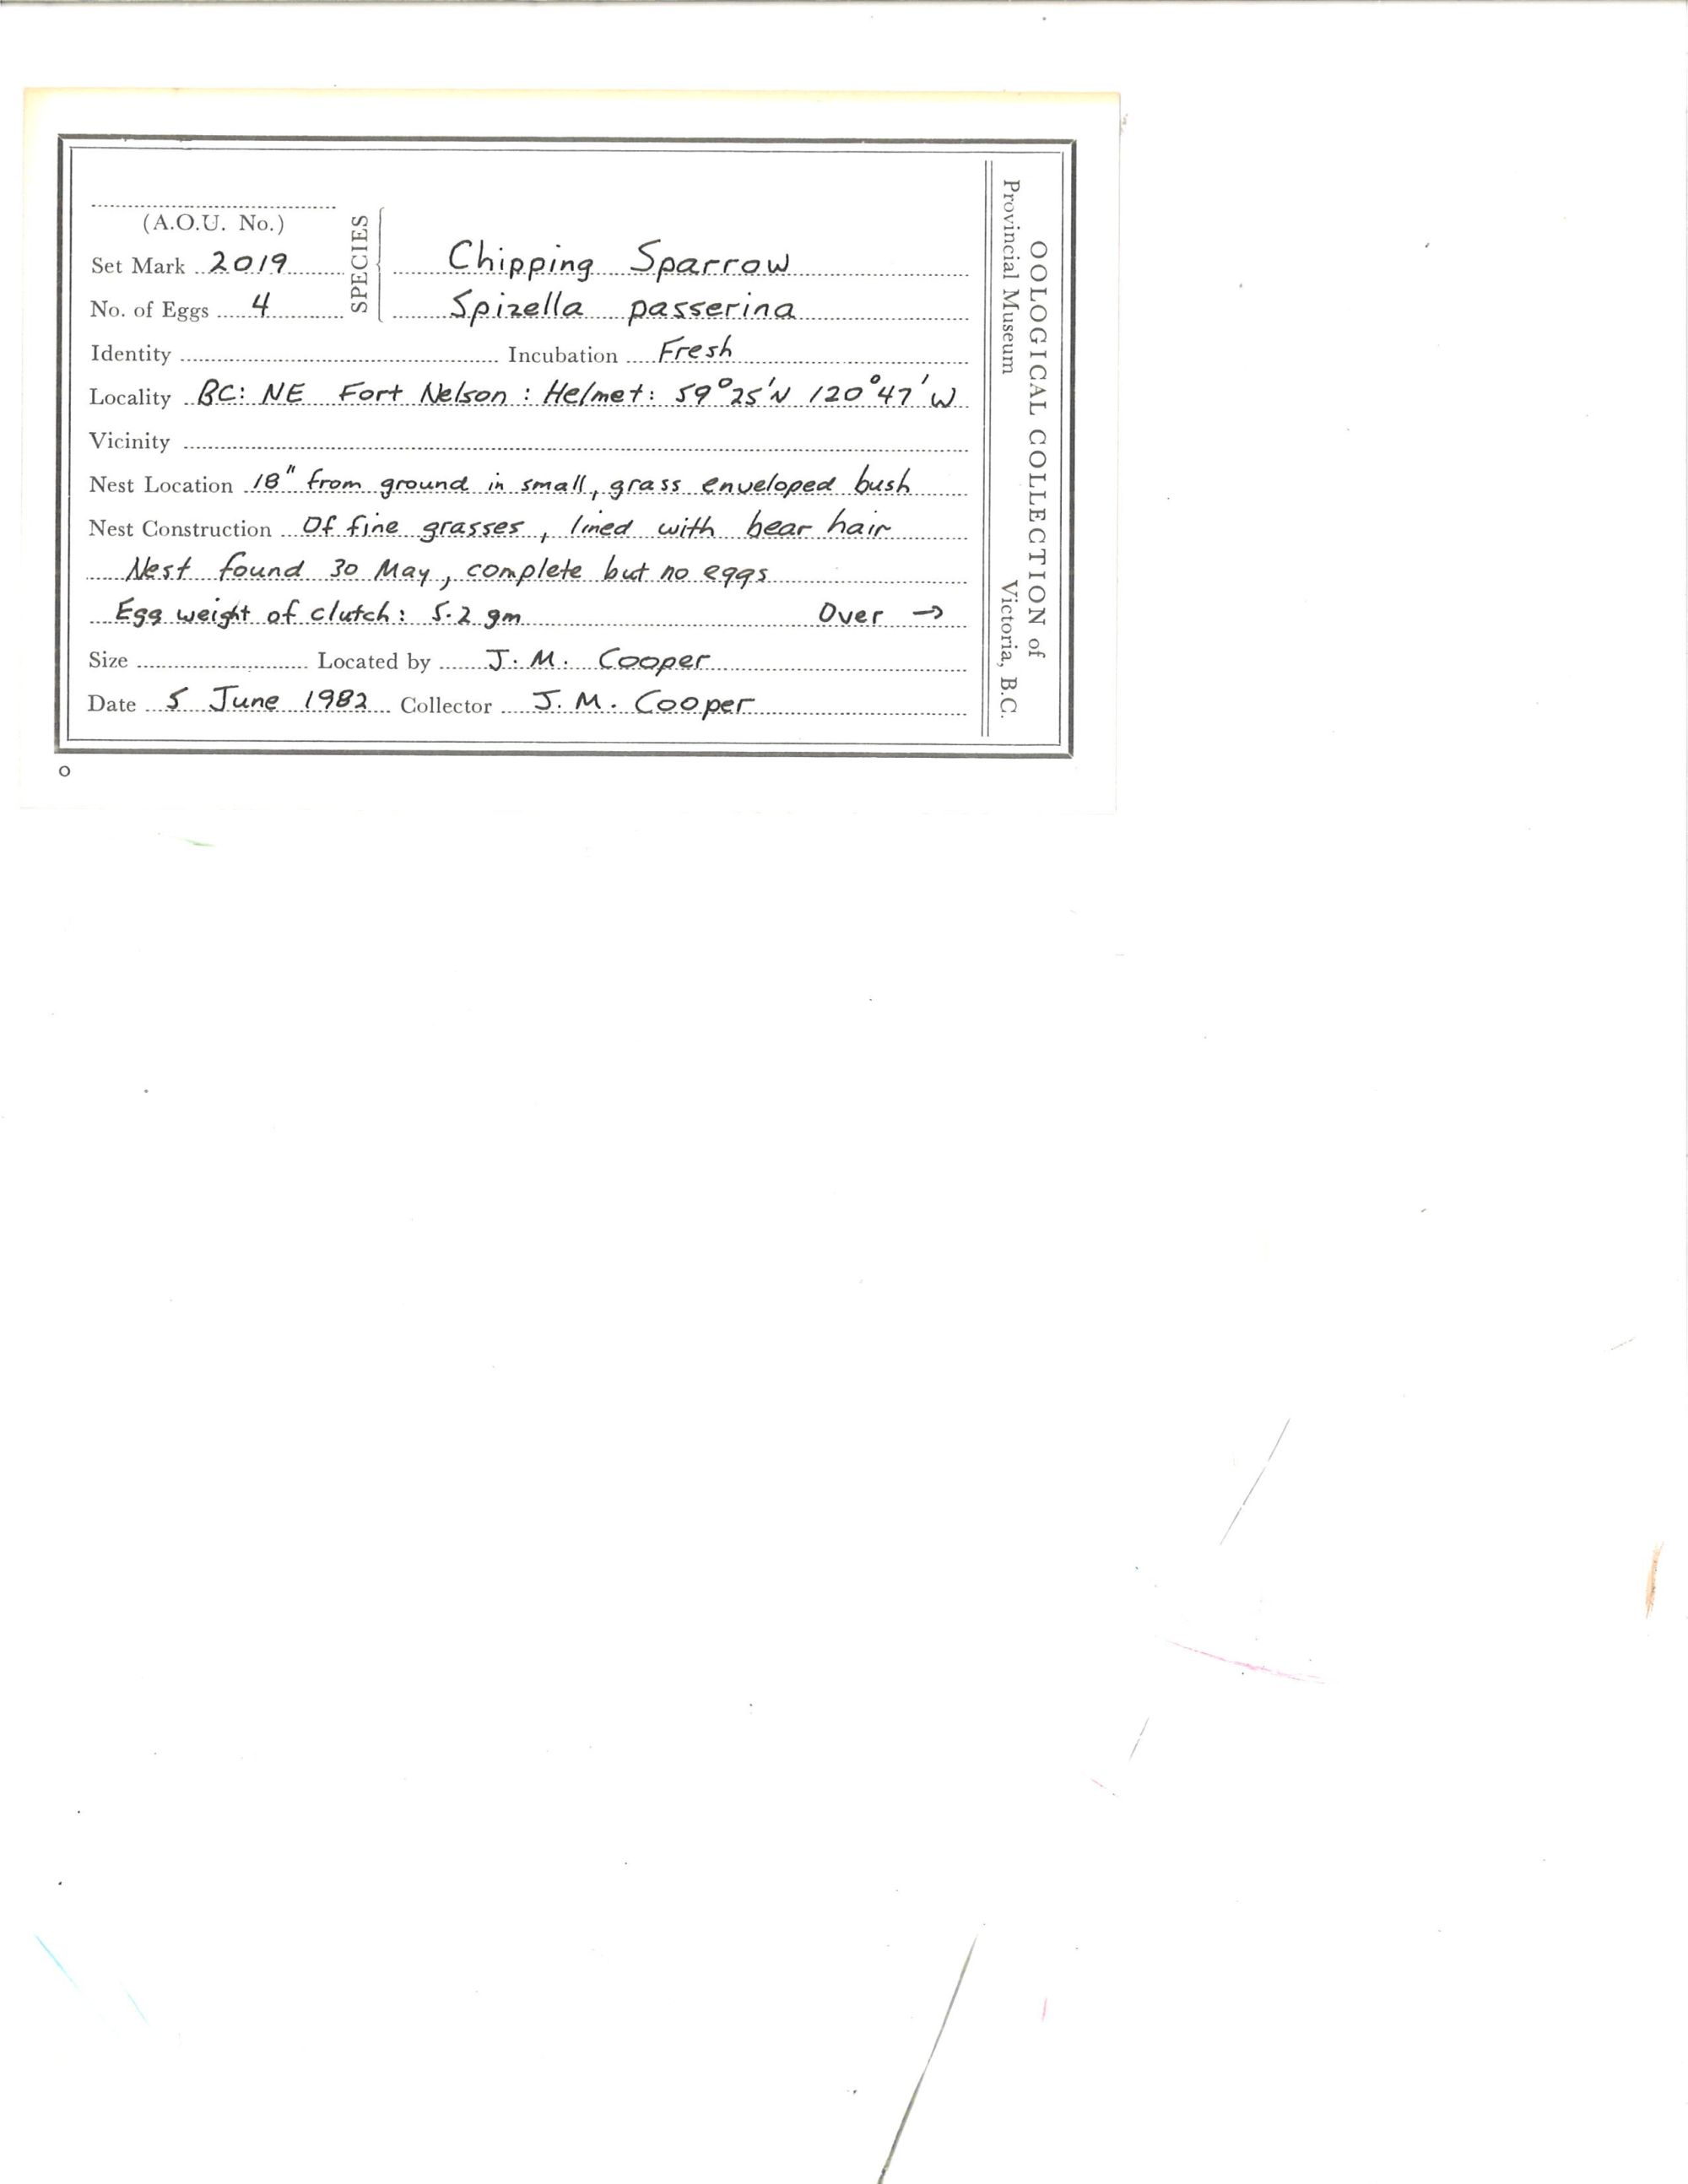 (A.O.U. No.)
Set Mark 2019
No. of Eggs 4
SPECIES
Chipping Sparrow
Spizella passerina
Identity Incubation Fresh
Locality BC: NE Fort Nelson : Helmet: 59°25'N 120°47'W
Vicinity
Nest Location 18" from ground in small, grass enveloped bush
Nest Construction Of fine grasses, lined with bear hair
Nest found 30 May, complete but no eggs
Egg weight of clutch: 5.2 gm Over →
Size Located by J. M. Cooper
Date 5 June 1982 Collector J. M. Cooper
OOLOGICAL COLLECTION of
Provincial Museum Victoria, B.C.